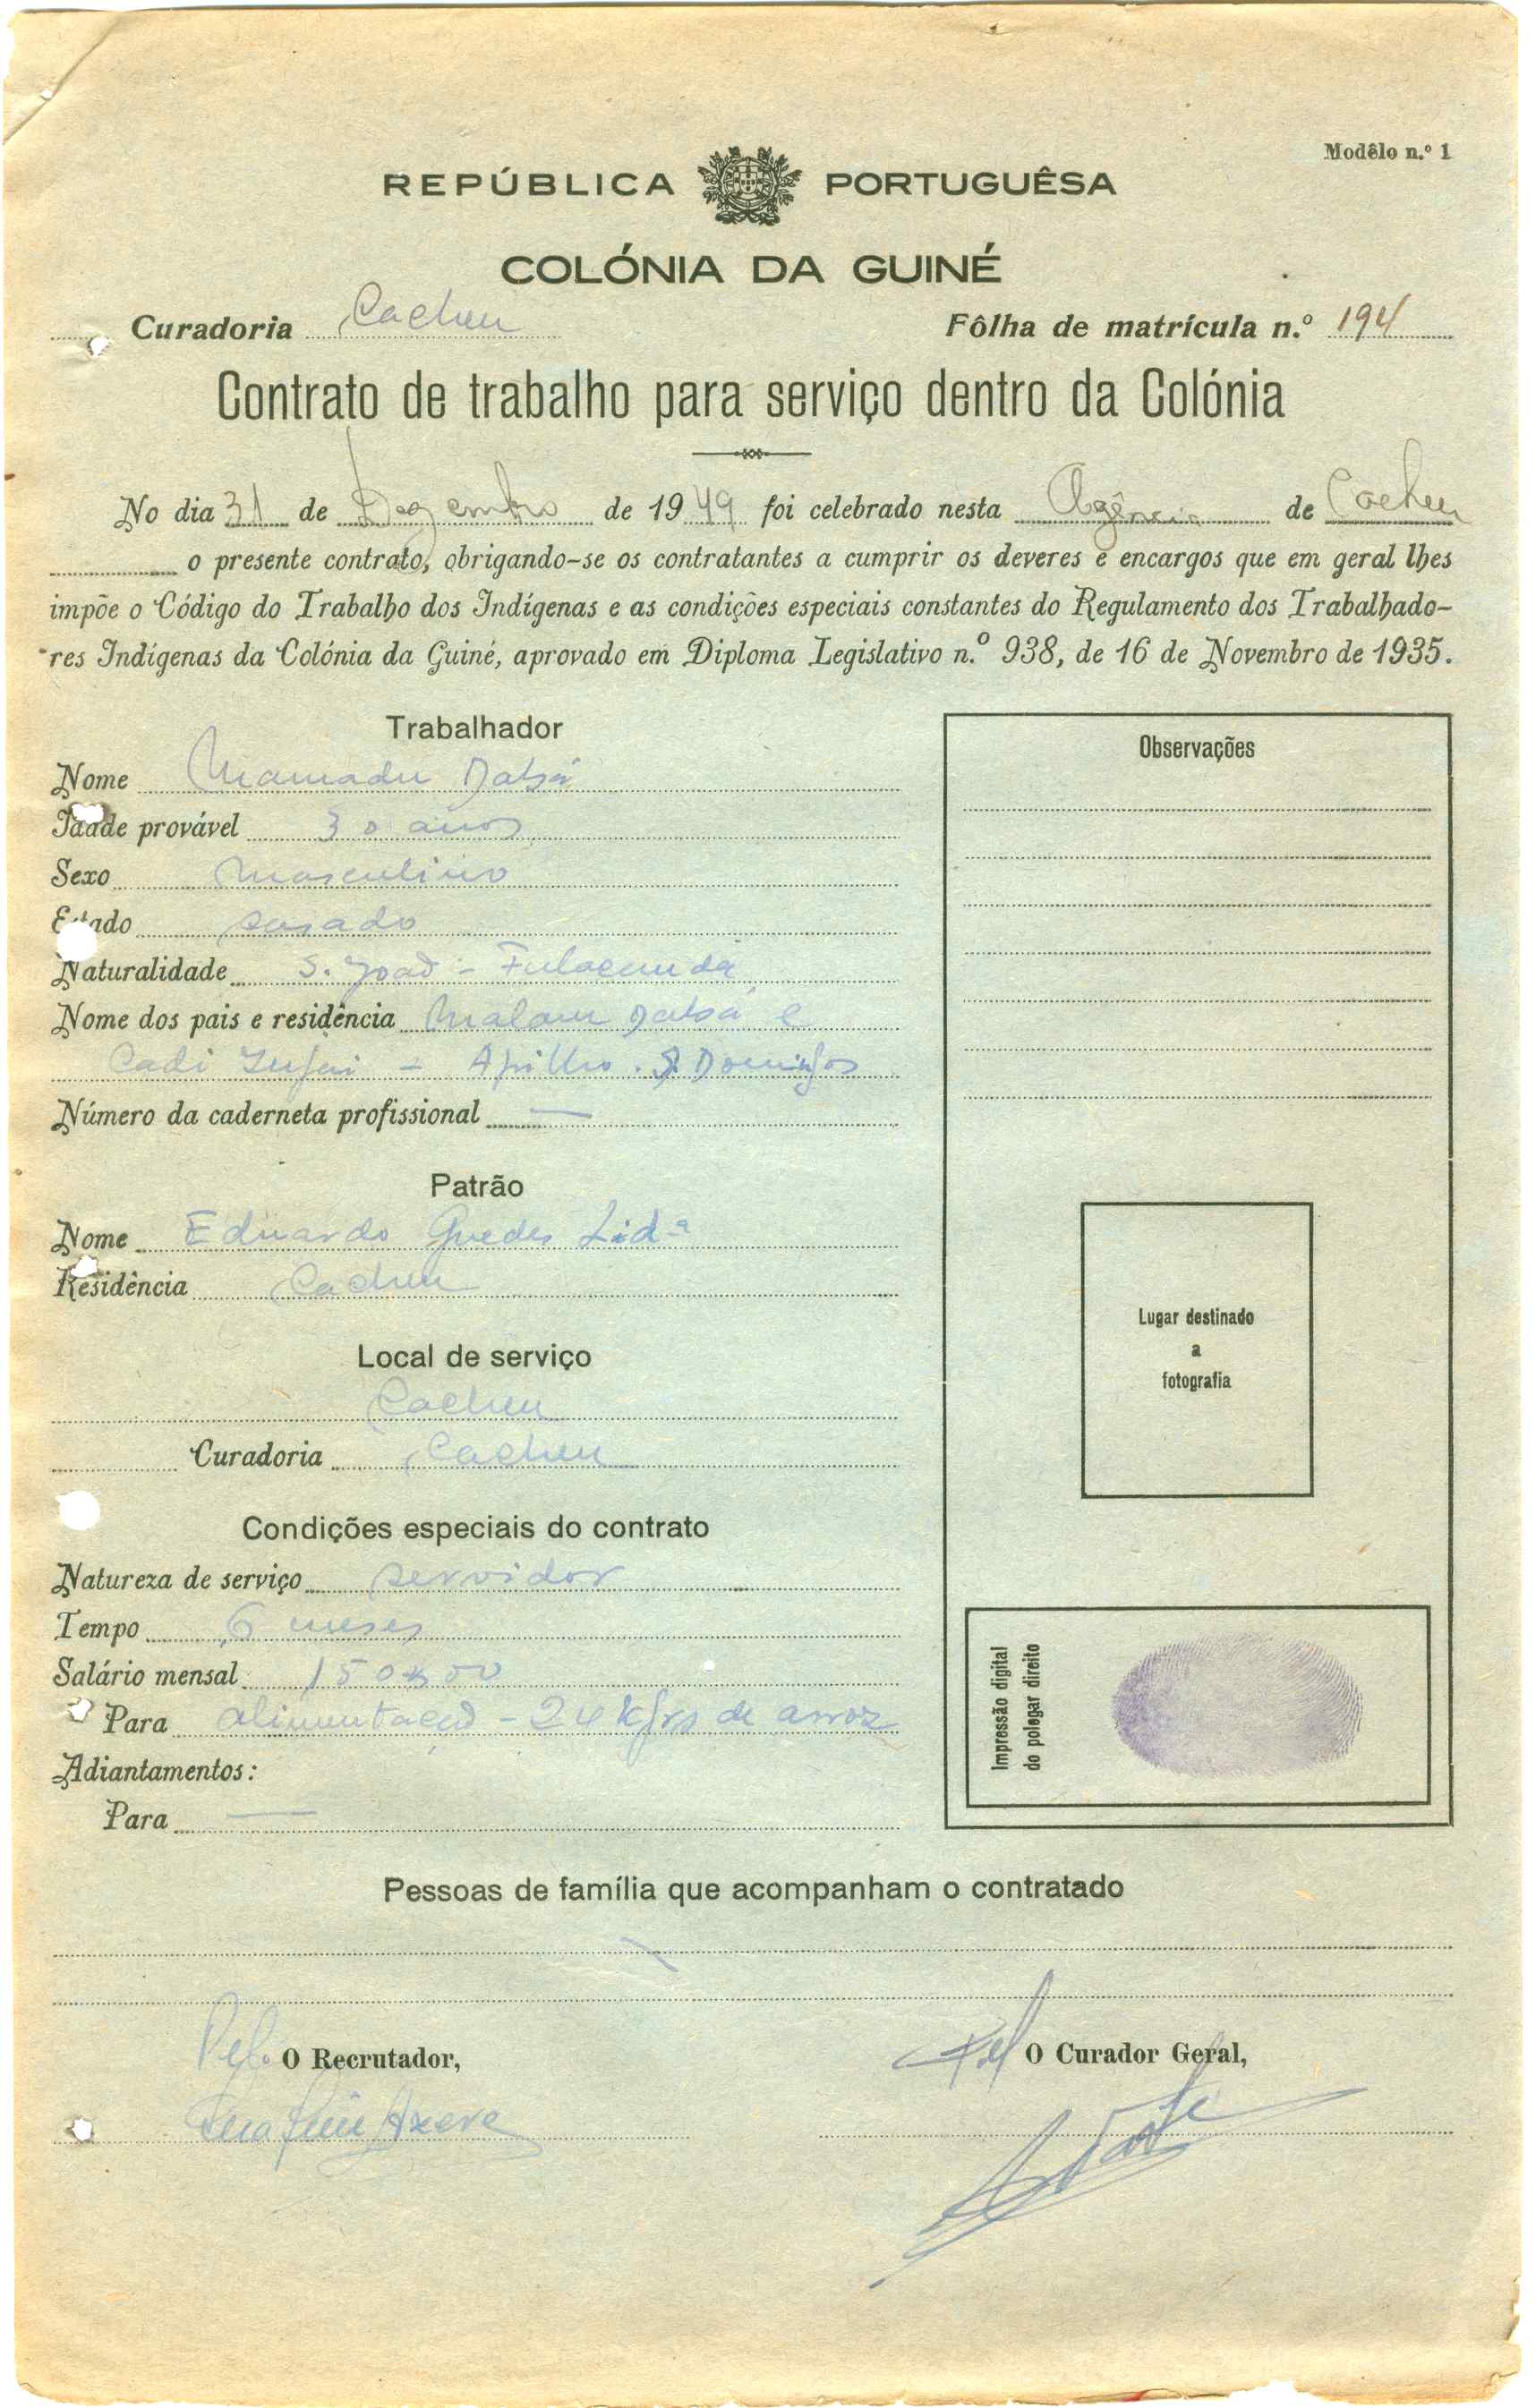 Modêlo n.º 1
REPÚBLICA PORTUGUÊSA
COLÓNIA DA GUINÉ
Curadoria Cacheu Fôlha de matrícula n.º 194
Contrato de trabalho para serviço dentro da Colónia
No dia 31 de Dezembro de 1949 foi celebrado nesta Agência de Cacheu
o presente contrato, obrigando-se os contratantes a cumprir os deveres e encargos que em geral lhes
impõe o Código do Trabalho dos Indígenas e as condições especiais constantes do Regulamento dos Trabalhado-
res Indígenas da Colónia da Guiné, aprovado em Diploma Legislativo n.º 938, de 16 de Novembro de 1935.
Trabalhador
Nome Mamadu Dabó
Idade provável 30 anos
Sexo Masculino
Estado casado
Naturalidade S. João - Fulacunda
Nome dos pais e residência Malam e
Cadi - S. Domingos
Número da caderneta profissional —
Patrão
Nome Eduardo Guedes Lidª
Residência Cacheu
Local de serviço
Cacheu
Curadoria Cacheu
Condições especiais do contrato
Natureza de serviço servidor
Tempo 6 meses
Salário mensal 150$00
Para alimentação - 24 kgrs de arroz
Adiantamentos:
Para —
Observações
Lugar destinado
a
fotografia
Impressão digital
do polegar direito
Pessoas de família que acompanham o contratado
Pelo O Recrutador,
Pel O Curador Geral,